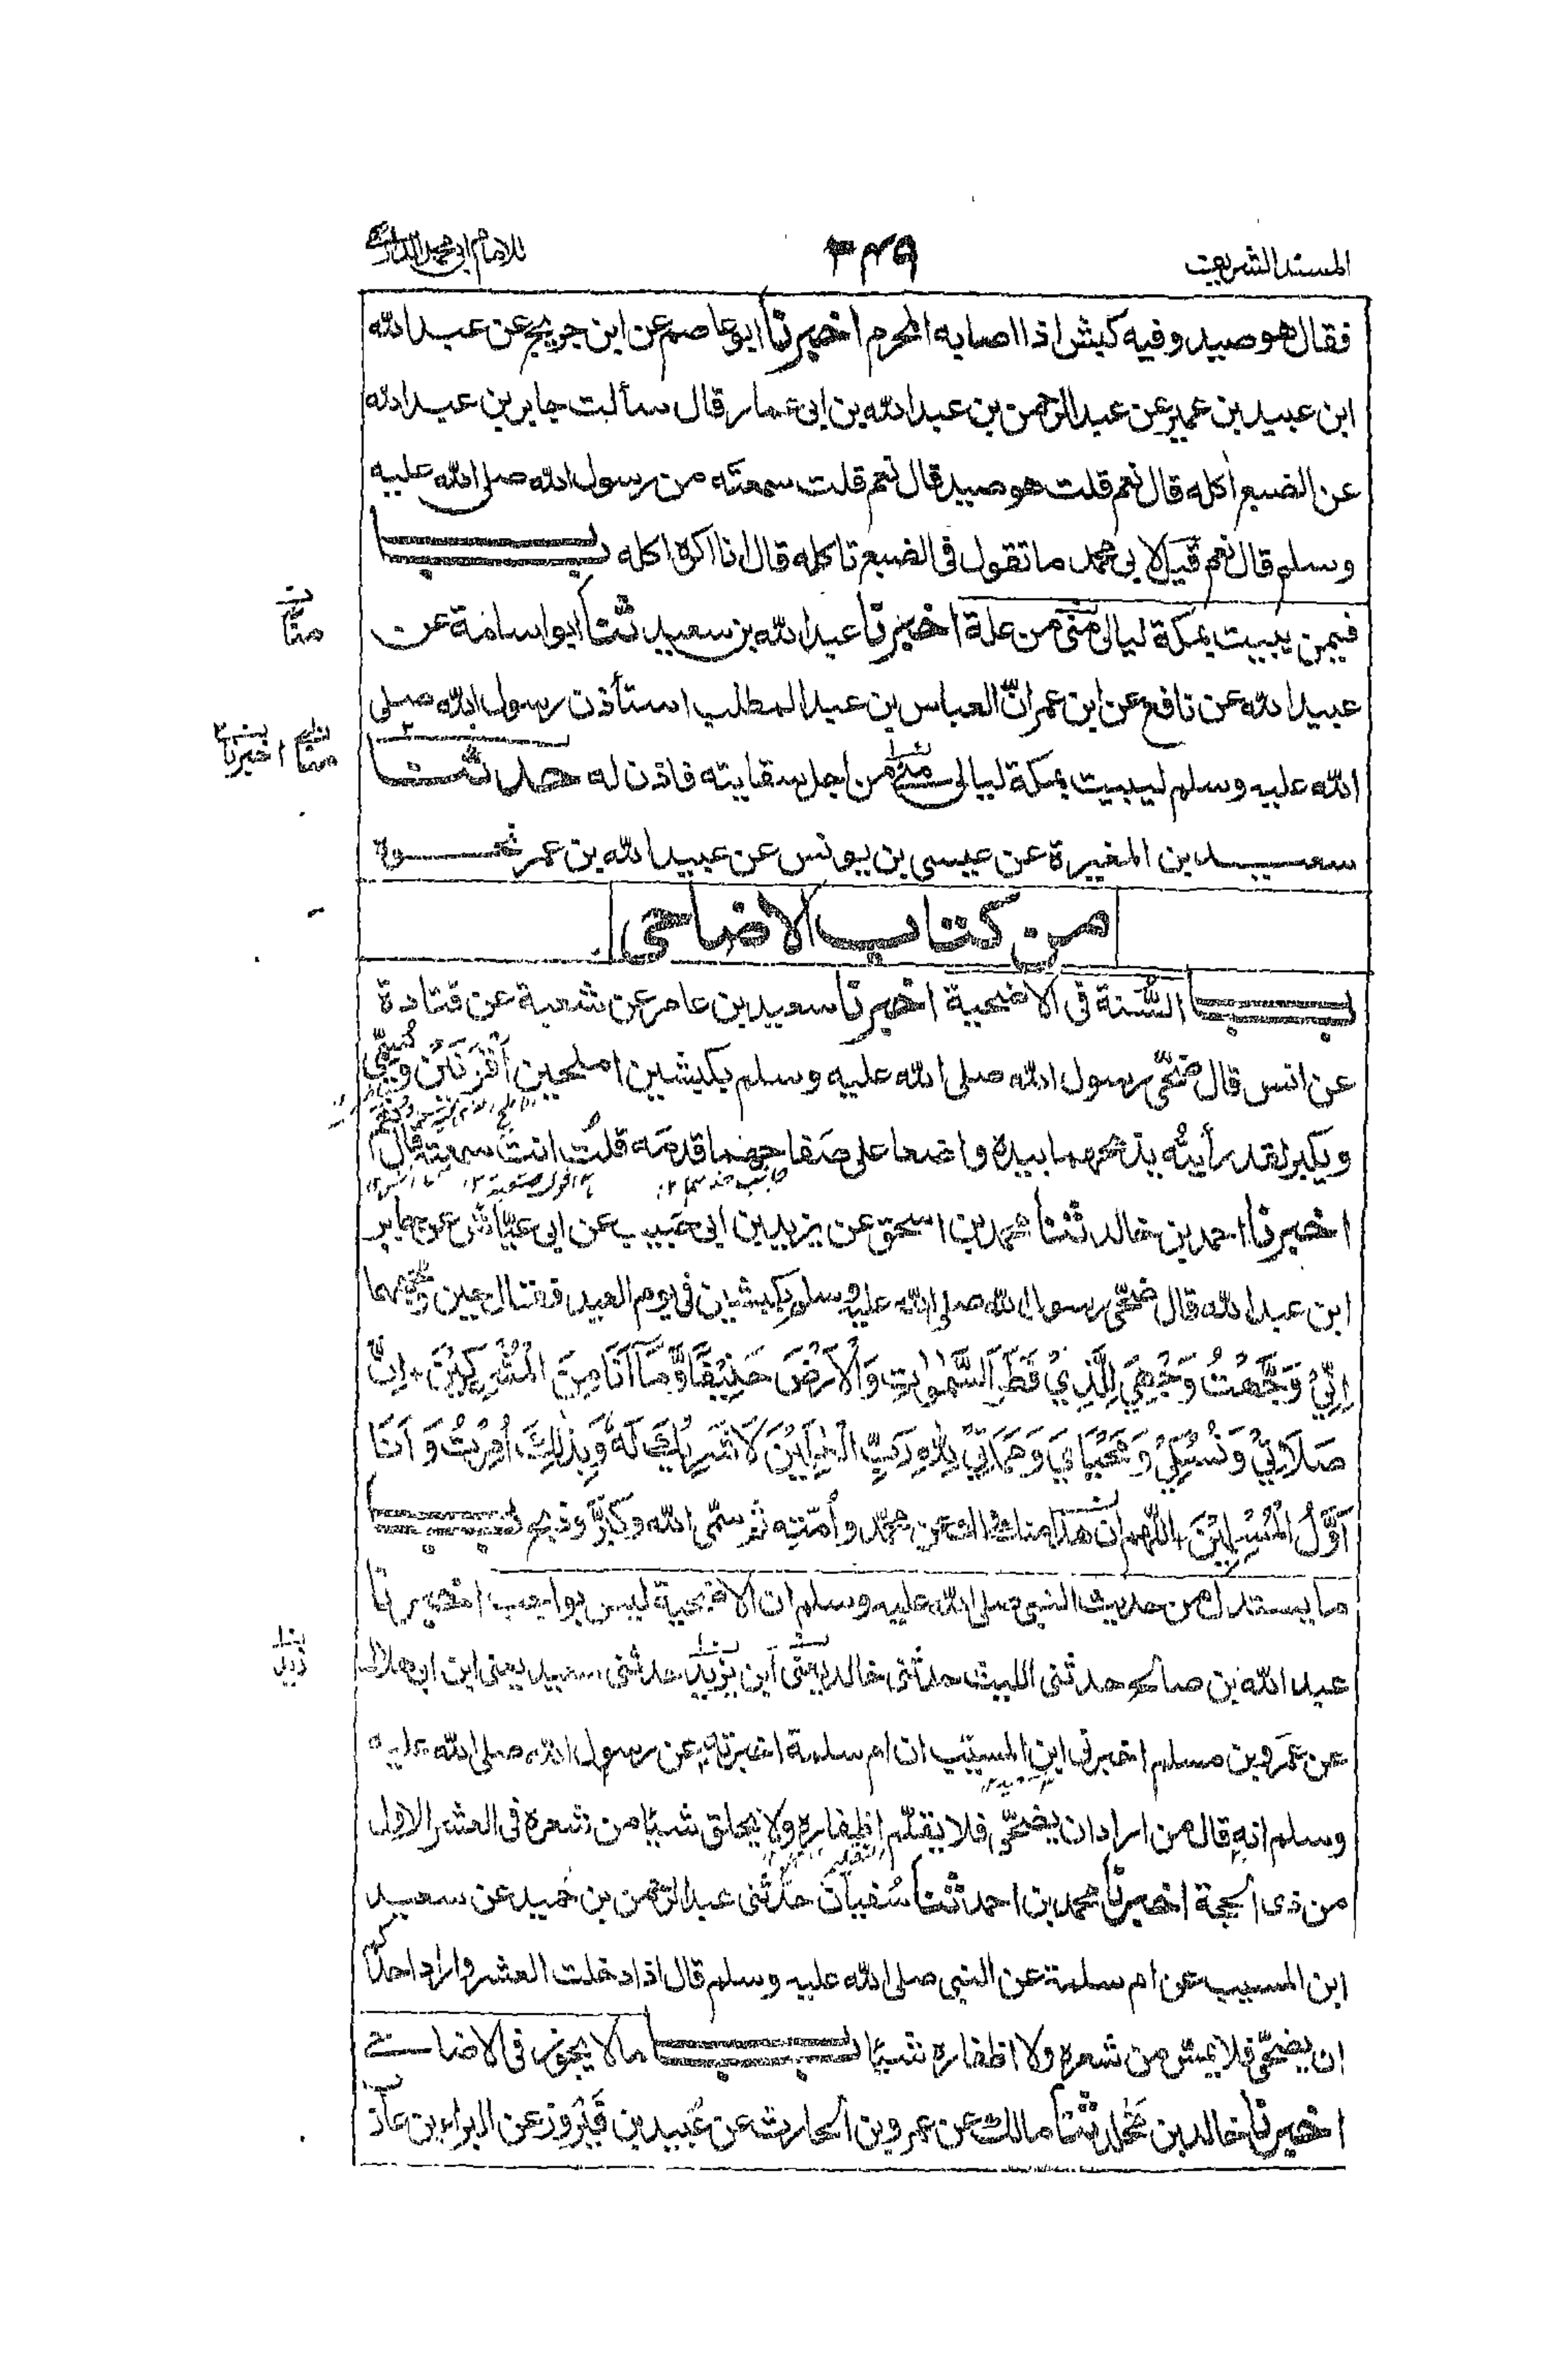 المسند الشريف
٢٤٩
للامام ابى محمد الدارمى
فقال هو صيد وفيه كبش اذا اصابه المحرم اخبرنا ابو عاصم عن ابن جريج عن عبد الله
ابن عبيد بن عمير عن عبد الرحمن بن عبد الله بن ابى عمار قال سألت جابر بن عبد الله
عن الضبع اٰكله قال نعم قلت هو صيد قال نعم قلت سمعته من رسول الله صلى الله عليه
وسلم قال نعم قيل لابى محمد ما تقول فى الضبع تاكله قال انا اكره اكله باب
فيمن يبيت بمكة ليالى منى من علة اخبرنا عبد الله بن سعيد ثنا ابو اسامة عن
عبيد الله عن نافع عن ابن عمر انّ العباس بن عبد المطلب استأذن رسول الله صلى
الله عليه وسلم ليبيت بمكة ليالى منى من اجل سقايته فاذن له حدثنا
سعيد بن المغيرة عن عيسى بن يونس عن عبيد الله بن عمر نحوه
من كتاب الاضاحى
باب السُّنة فى الاضحية اخبرنا سعيد بن عامر عن شعبة عن قتادة
عن انس قال ضحّى رسول الله صلى الله عليه وسلم بكبشين املحين اَقْرَنَيْن ويُسمِّى
ويكبر لقد رأيتُه يذبحهما بيده واضعا على صفاحهما قدمه قلتُ انتَ سمعته قال
اخبرنا احمد بن خالد ثنا محمد بن اسحق عن يزيد بن ابى حَبيب عن ابى عيّاش عن جابر
ابن عبد الله قال ضحّى رسول الله صلى الله عليه وسلم بكبشين فى يوم العيد فقال حين وجّههما
اِنِّيْ وَجَّهْتُ وَجْهِيَ لِلَّذِيْ فَطَرَ السَّمٰوٰتِ وَالْاَرْضَ حَنِيْفًا وَّمَا اَنَا مِنَ الْمُشْرِكِيْنَ۔ اِنَّ
صَلَاتِيْ وَنُسُكِيْ وَمَحْيَايَ وَمَمَاتِيْ لِلّٰهِ رَبِّ الْعٰلَمِيْنَ لَا شَرِيْكَ لَهٗ وَبِذٰلِكَ اُمِرْتُ وَ اَنَا
اَوَّلُ الْمُسْلِمِيْنَ۔ اللّٰهم ان هذا منك ولك عن محمّد وأمّته ثم سمّى الله وكبَّر وذبح باب
ما يستدل من حديث النبى صلى الله عليه وسلم ان الاضحية ليس بواجب اخبرنا
عبد الله بن صالح حدثنى الليث حدثنى خالد يعنى ابن يزيد حدثنى سعيد يعنى ابن ابى هلال
عن عمرو بن مسلم اخبرنى ابن المسيّب ان ام سلمة اخبرته عن رسول الله صلى الله عليه
وسلم انه قال من اراد ان يضحّى فلا يقلّم اظفاره ولا يحلق شيئا من شعره فى العشر الاول
من ذى الحجة اخبرنا محمد بن احمد ثنا سُفيان حدّثنى عبد الرحمن بن حُميد عن سعيد
ابن المسيب عن ام سلمة عن النبى صلى الله عليه وسلم قال اذا دخلت العشر واراد احدكم
ان يضحّى فلا يمسّ من شعره ولا اظفاره شيئا باب ما لا يجوز فى الاضاحى
اخبرنا خالد بن مَخلد ثنا مالك عن عمرو بن الحارث عن عُبيد بن فَيْرُوز عن البراء بن عازب